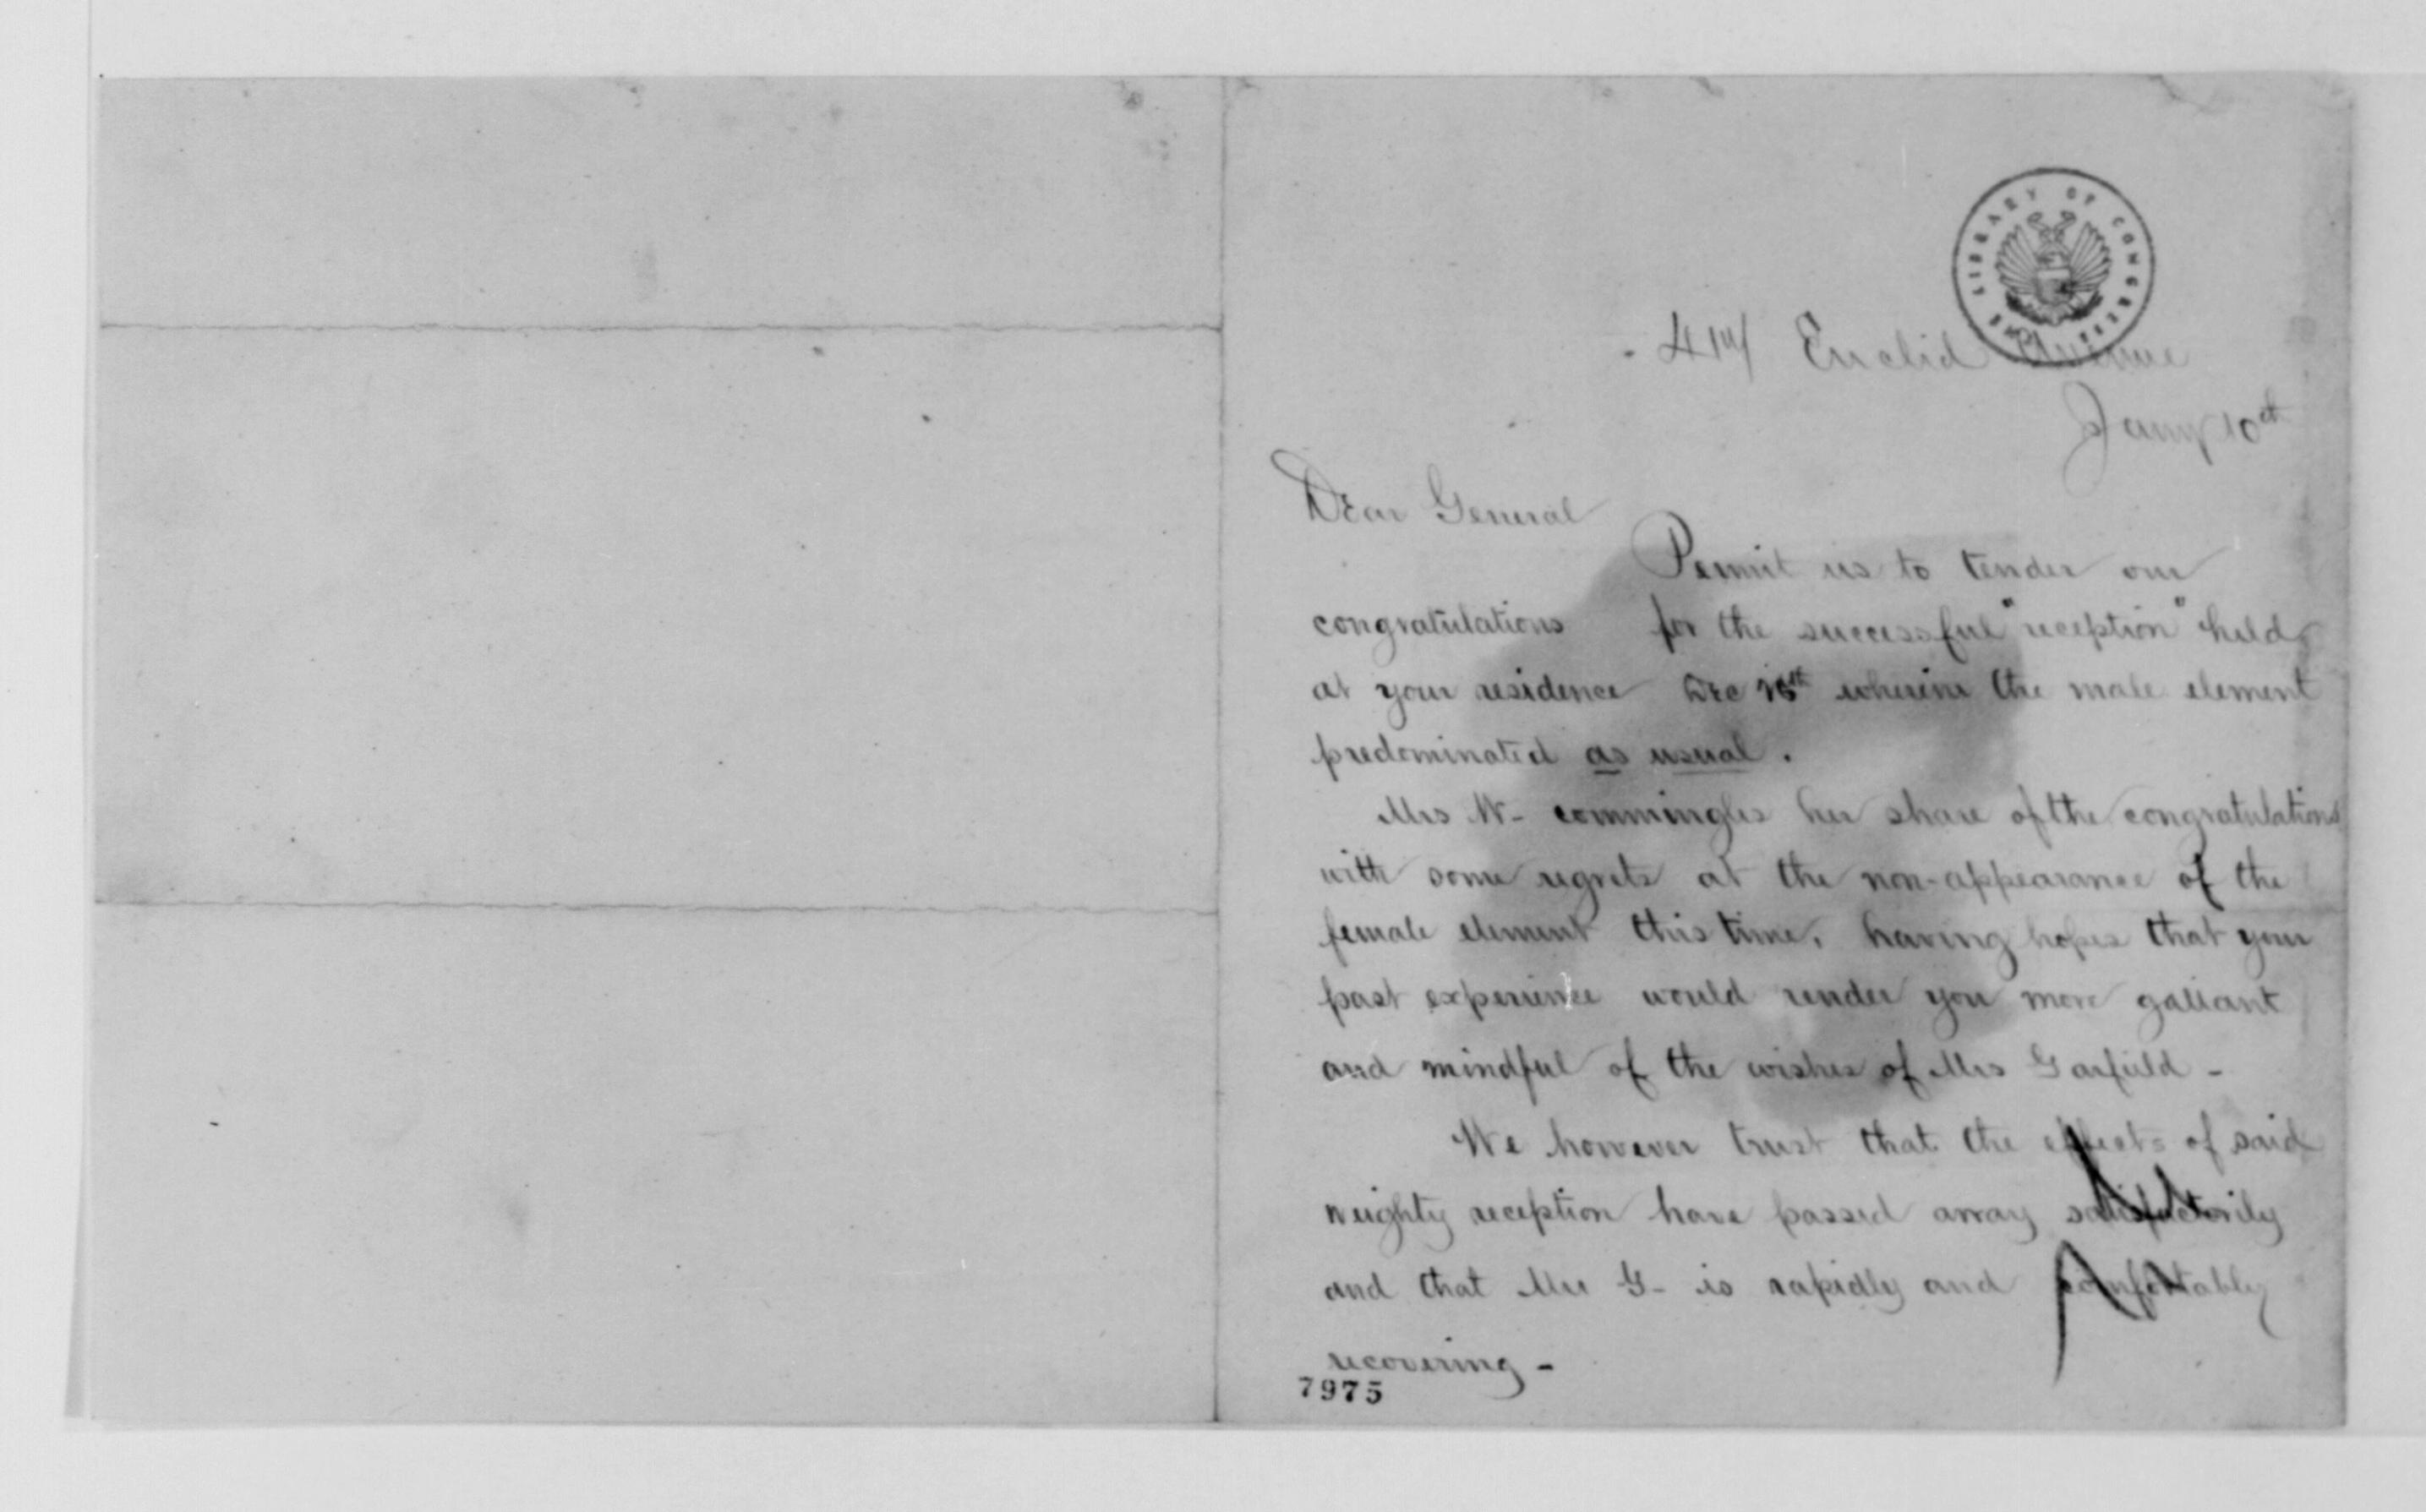 LIBRARY OF CONGRESS
Euclid Avenue
Jany 10th
Dear General
Permit us to tender our
congratulations for the successful "reception" held
at your residence Dec wherein the male element
predominated as usual.
Mrs W- commingles her share of the congratulations
with some regrets at the non-appearance of the
female element this time, having hopes that your
past experience would render you more gallant
and mindful of the wishes of Mrs Garfield -
We however trust that the effects of said
weighty reception have passed away satisfactorily
and that Mrs G- is rapidly and comfortably
recovering -
7975